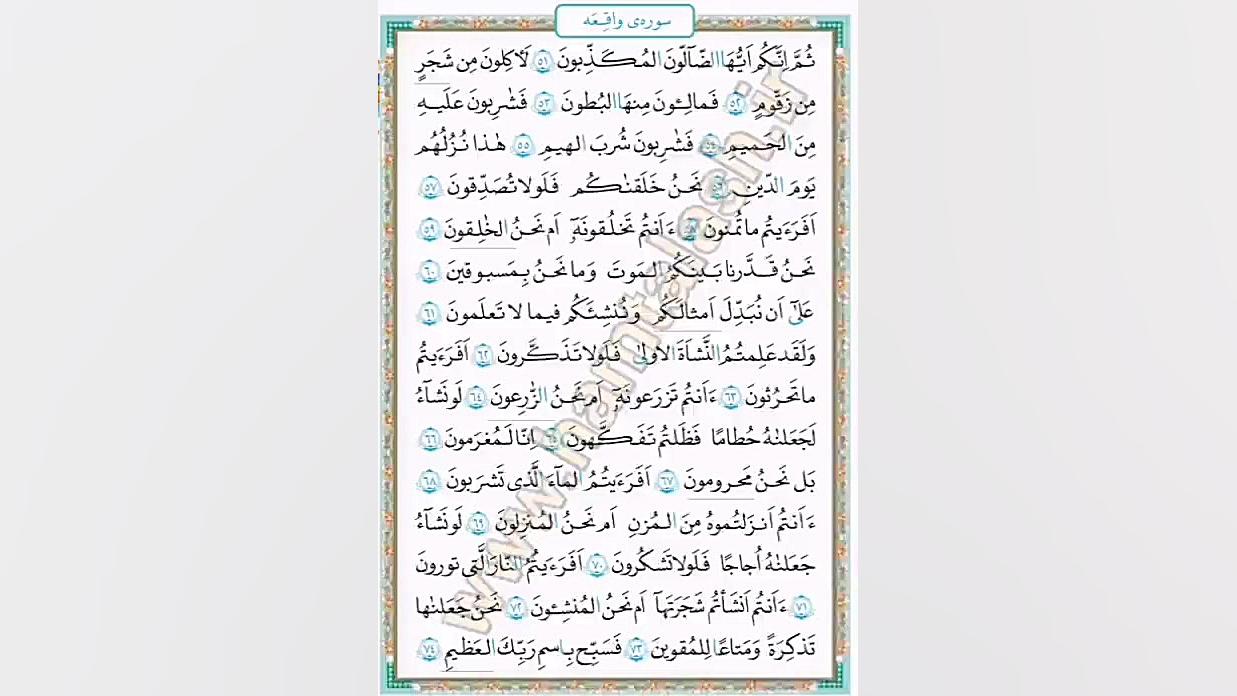 سوره‌ی واقِعَه
ثُمَّ اِنَّكُم اَيُّهَا الضّآلّونَ المُكَذِّبونَ ٥١ لَأكِلونَ مِن شَجَرٍ
مِن زَقّومٍ ٥٢ فَمالِئونَ مِنهَا البُطونَ ٥٣ فَشٰرِبونَ عَلَيهِ
مِنَ الحَميمِ ٥٤ فَشٰرِبونَ شُربَ الهيمِ ٥٥ هٰذا نُزُلُهُم
يَومَ الدّينِ ٥٦ نَحنُ خَلَقنٰكُم فَلَولا تُصَدِّقونَ ٥٧
اَفَرَءَيتُم ما تُمنونَ ٥٨ ءَاَنتُم تَخلُقونَهٗٓ اَم نَحنُ الخٰلِقونَ ٥٩
نَحنُ قَدَّرنا بَينَكُمُ المَوتَ وَما نَحنُ بِمَسبوقينَ ٦٠
عَلىٰٓ اَن نُبَدِّلَ اَمثالَكُم وَنُنشِئَكُم فيما لا تَعلَمونَ ٦١
وَلَقَد عَلِمتُمُ النَّشأَةَ الاولىٰ فَلَولا تَذَكَّرونَ ٦٢ اَفَرَءَيتُم
ما تَحرُثونَ ٦٣ ءَاَنتُم تَزرَعونَهٗٓ اَم نَحنُ الزّٰرِعونَ ٦٤ لَو نَشآءُ
لَجَعَلنٰهُ حُطامًا فَظَلتُم تَفَكَّهونَ ٦٥ اِنّا لَمُغرَمونَ ٦٦
بَل نَحنُ مَحرومونَ ٦٧ اَفَرَءَيتُمُ المآءَ الَّذى تَشرَبونَ ٦٨
ءَاَنتُم اَنزَلتُموهُ مِنَ المُزنِ اَم نَحنُ المُنزِلونَ ٦٩ لَو نَشآءُ
جَعَلنٰهُ اُجاجًا فَلَولا تَشكُرونَ ٧٠ اَفَرَءَيتُمُ النّارَ الَّتى تورونَ
٧١ ءَاَنتُم اَنشَأتُم شَجَرَتَهآ اَم نَحنُ المُنشِئونَ ٧٢ نَحنُ جَعَلنٰها
تَذكِرَةً وَمَتاعًا لِلمُقوينَ ٧٣ فَسَبِّح بِاسمِ رَبِّكَ العَظيمِ ٧٤
www.hamtalash.ir